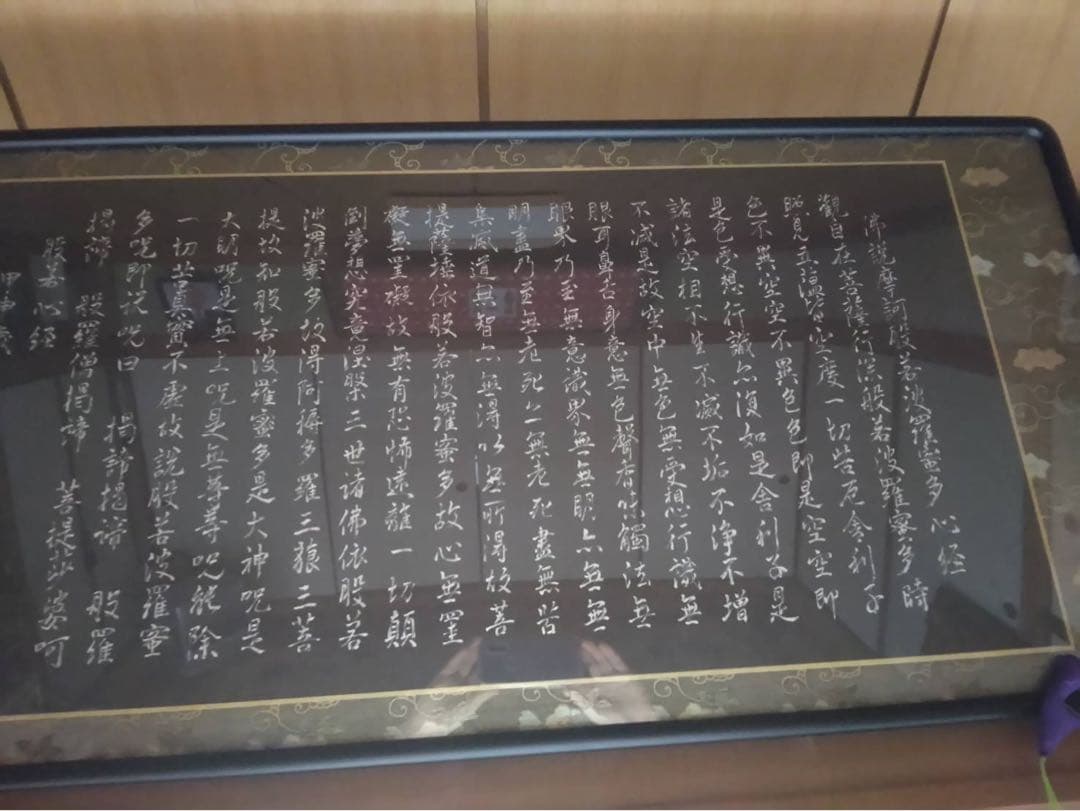 佛説摩訶般若波羅蜜多心経
觀自在菩薩行深般若波羅蜜多時
照見五蘊皆空度一切苦厄舎利子
色不異空空不異色色即是空空即
是色受想行識亦復如是舎利子是
諸法空相不生不滅不垢不浄不増
不減是故空中無色無受想行識無
眼耳鼻舌身意無色聲香味觸法無
眼界乃至無意識界無無明亦無無
明盡乃至無老死亦無老死盡無苦
集滅道無智亦無得以無所得故菩
提薩埵依般若波羅蜜多故心無罣
礙無罣礙故無有恐怖遠離一切顛
倒夢想究竟涅槃三世諸佛依般若
波羅蜜多故得阿耨多羅三藐三菩
提故知般若波羅蜜多是大神呪是
大明呪是無上呪是無等等呪能除
一切苦真實不虚故説般若波羅蜜
多呪即説呪曰 揭諦揭諦 般羅
揭諦 般羅僧揭諦 菩提莎婆呵
般若心経